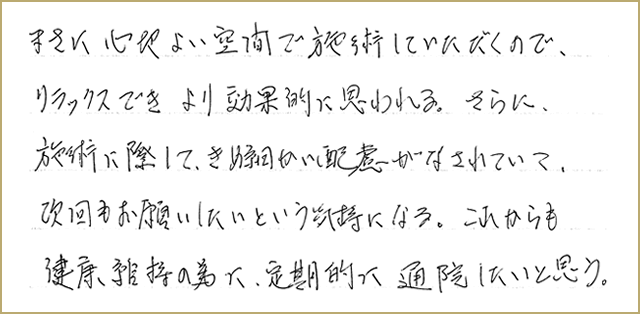 まさに心地よい空間で施術していただくので、
リラックスでき より効果的に思われる。さらに、
施術に際して、きめ細かい配慮がなされていて、
次回もお願いしたいという気持になる。これからも
健康維持の為に、定期的に通院したいと思う。